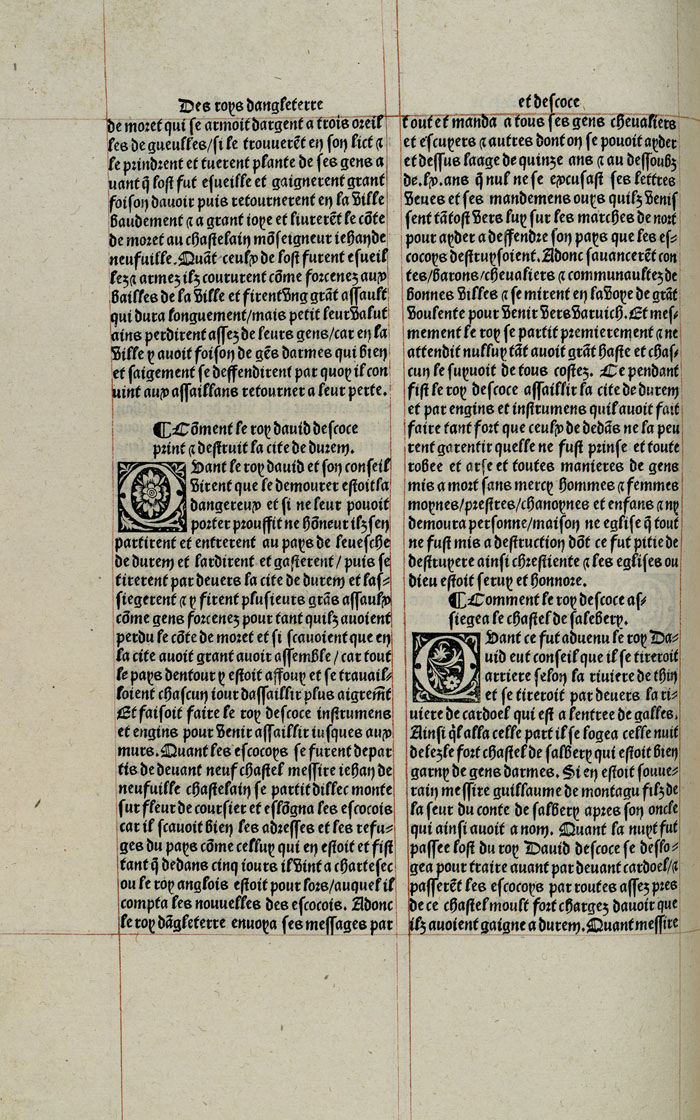 Des roys dangleterre
de moret qui se armoit dargent a trois oreil
les de gueulles/si le trouuerēt en son lict ⁊
le prindrent et tuerent plante de ses gens a
uant q̄ lost fut esueille et gaignerent grant
foison dauoir puis retournerent en la ville
baudement ⁊ a grant ioye et liurerēt le cōte
de moret au chastelain mōseigneur iehan de
neufuille. Quāt ceulx de lost furent esueil
lez ⁊ armez ilz coururent cōme forcenez aux
bailles de la ville et firent vng grāt assault
qui dura longuement/mais petit leur valut
ains perdirent assez de leurs gens/car en la
ville y auoit foison de gēs darmes qui bien
et saigement se deffendirent par quoy il con
uint aux assaillans retourner a leur perte.
¶ Cōment le roy dauid descoce
print ⁊ destruit la cite de durem.
Quant le roy dauid et son conseil
virent que le demourer estoit la
dangereux et si ne leur pouoit
porter prouffit ne hōneur ilz sen
partirent et entrerent au pays de leuesche
de durem et lardirent et gasterent/ puis se
tirerent par deuers la cite de durem et las-
siegerent ⁊ y firent plusieurs grās assaulx
cōme gens forcenez pour tant quilz auoient
perdu le cōte de moret et si scauoient que en
la cite auoit grant auoir assemble/car tout
le pays dentour y estoit affouy et se trauail-
loient chascun iour dassaillir plus aigremēt
Et faisoit faire le roy descoce instrumens
et engins pour venir assaillir iusques aux
murs. Quant les escocoys se furent depar
tis de deuant neuf chastel messire iehan de
neufuille chastelain se partit dillec monte
sur fleur de coursier et eslōgna les escocois
car il scauoit bien les adresses et les refu-
ges du pays cōme celluy qui en estoit et fist
tant q̄ dedans cinq iours il vint a chartesec
ou le roy anglois estoit pour lors/auquel il
compta les nouuelles des escocois. Adonc
le roy dāgleterre enuoya ses messages par
et descoce
tout et manda a tous ses gens cheualiers
et escuyers ⁊ autres dont on se pouoit ayder
et dessus laage de quinze ans ⁊ au dessoubz
de.lx.ans q̄ nul ne se excusast ses lettres
veues et ses mandemens ouys quilz venis
sent tātost vers luy sur les marches de nort
pour ayder a deffendre son pays que les es-
cocoys destruysoient. Adonc sauancerēt con
tes/barons/cheualiers ⁊ communaultez de
bonnes villes ⁊ se mirent en la voye de grāt
voulente pour venir vers varuich. Et mes-
mement le roy se partit premierement ⁊ ne
attendit nulluy tāt auoit grāt haste et chas-
cun le suyuoit de tous costez. Ce pendant
fist le roy descoce assaillir la cite de durem
et par engins et instrumens quil auoit fait
faire tant fort que ceulx de dedās ne la peu
rent garentir quelle ne fust prinse et toute
robee et arse et toutes manieres de gens
mis a mort sans mercy hommes ⁊ femmes
moynes/prestres/chanoynes et enfans ⁊ ny
demoura personne/maison ne eglise q̄ tout
ne fust mis a destruction dōt ce fut pitie de
destruyere ainsi chrestiente ⁊ les eglises ou
dieu estoit seruy et honnore.
¶ Comment le roy descoce as-
siegea le chastel de salebery.
Quant ce fut aduenu le roy Da-
uid eut conseil que il se tireroit
arriere selon la riuiere de thin
et se tireroit par deuers la ri-
uiere de cardoel qui est a lentree de galles.
Ainsi q̄l alla celle part il se logea celle nuit
delez le fort chastel de salbery qui estoit bien
garny de gens darmes. Si en estoit souue-
rain messire guillaume de montagu filz de
la seur du conte de salbery apres son oncle
qui ainsi auoit a nom. Quant la nuyt fut
passee lost du roy Dauid descoce se deslo-
gea pour traire auant par deuant cardoel/⁊
passerēt les escocoys par routes assez pres
de ce chastel moult fort chargez dauoir que
ilz auoient gaigne a durem. Quant messire